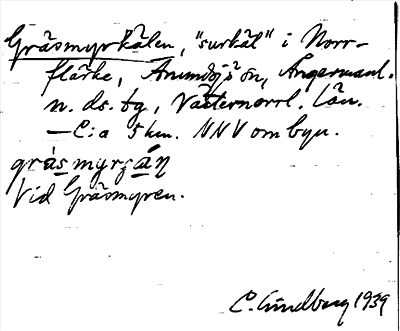 Gräsmyrkälen, "surkäl" i Norr-
flärke, Anundsjö sn, Ångermanl.
n. ds. fg, Västernorrl. län.
— C:a 5 km. NNV om byn.
gräsmyrʒäɳ
Vid Gräsmyren.
C. Lindberg 1939